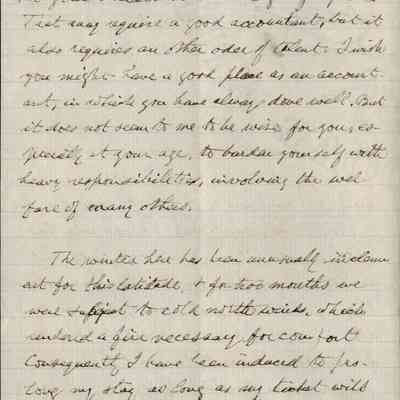 That may require a good accountant, but it
also requires an other oder of talent. I wish
you might have a good place as an account-
ant, in which you have always done well. But
it does not seem to me to be wise for you, es-
pecially at your age, to burden yourself with
heavy responsibilities, involving the wel
fare of many others.
The winter here has been unusually inclem
ent for this latitude, & for two months we
were subject to cold north winds, which
rendered a fire necessary for comfort
Consequently I have been induced to pro-
long my stay as long as my ticket will